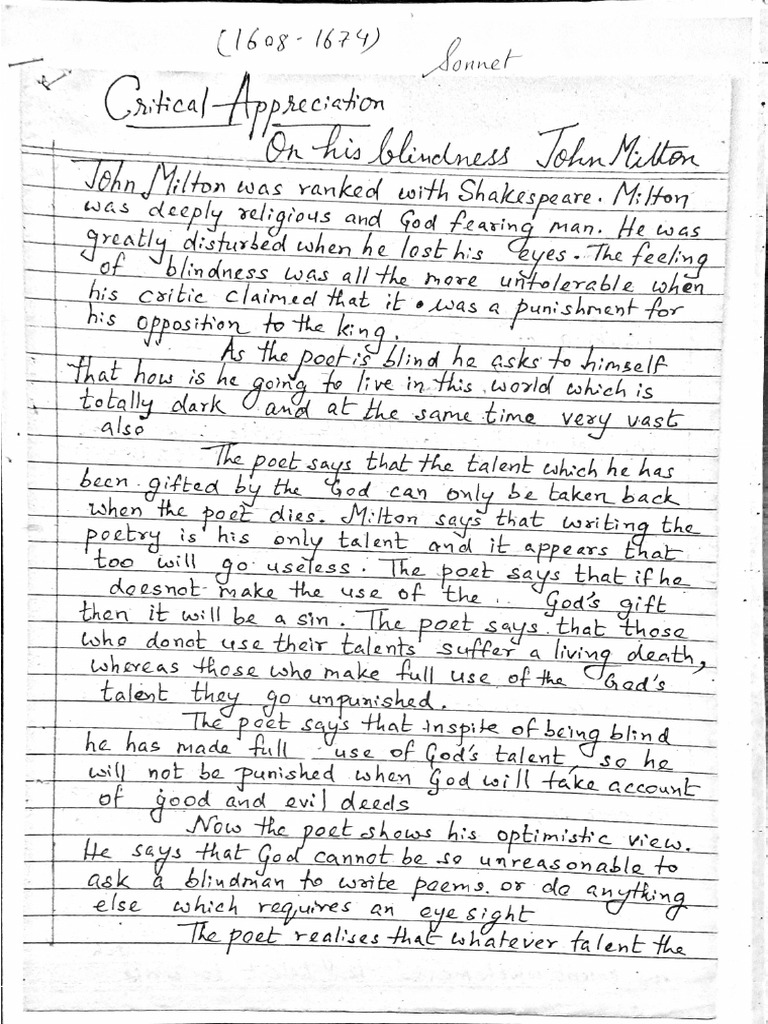 (1608-1674)
Sonnet
Critical Appreciation
On his blindness John Milton
John Milton was ranked with Shakespeare. Milton
was deeply religious and God fearing man. He was
greatly disturbed when he lost his eyes. The feeling
of blindness was all the more untolerable when
his critic claimed that it was a punishment for
his opposition to the king.
As the poet is blind he asks to himself
that how is he going to live in this world which is
totally dark and at the same time very vast
also
The poet says that the talent which he has
been gifted by the God can only be taken back
when the poet dies. Milton says that writing the
poetry is his only talent and it appears that
too will go useless. The poet says that if he
doesnot make the use of the God's gift
then it will be a sin. The poet says that those
who donot use their talents suffer a living death,
whereas those who make full use of the God's
talent they go unpunished.
The poet says that inspite of being blind
he has made full use of God's talent, so he
will not be punished when God will take account
of good and evil deeds
Now the poet shows his optimistic view.
He says that God cannot be so unreasonable to
ask a blindman to write poems. or do anything
else which requires an eye sight
The poet realises that whatever talent the